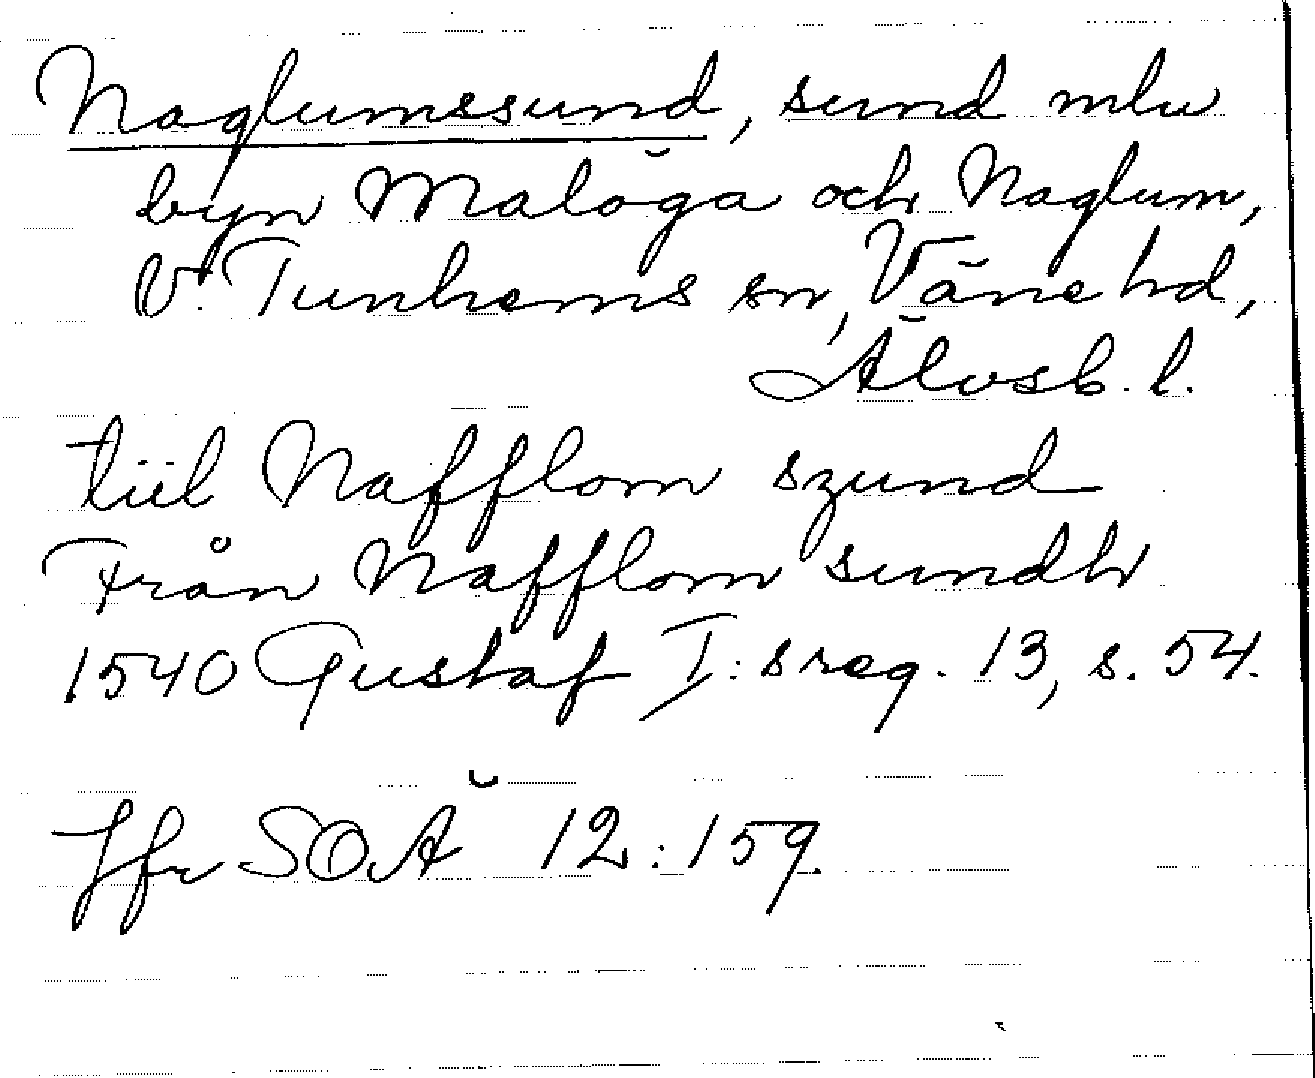 Naglumssund, sund mlu
byn Malöga och Naglum,
V. Tunhems sn, Väne hd,
Älvsb. l.
tiil Nafflom szund
Från Nafflom sundh
1540 Gustaf I: s reg. 13, s. 54.
Jfr SOÄ 12:159.